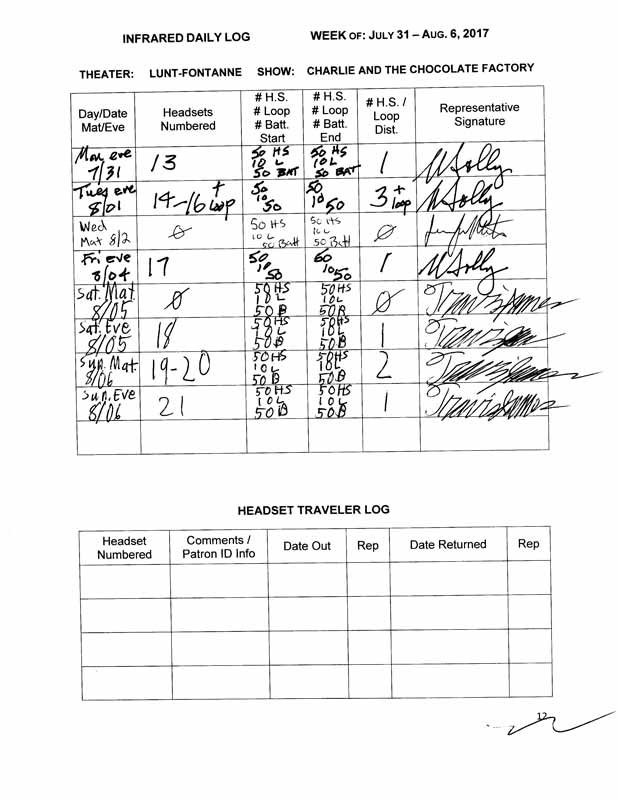 INFRARED DAILY LOG WEEK OF: JULY 31 – AUG. 6, 2017
THEATER: LUNT-FONTANNE SHOW: CHARLIE AND THE CHOCOLATE FACTORY
Day/Date Mat/Eve
Headsets Numbered
# H.S. # Loop # Batt. Start
# H.S. # Loop # Batt. End
# H.S. / Loop Dist.
Representative Signature
Mon eve 7/31 13 50 HS 10 L 50 BAT 50 HS 10 L 50 BAT 1
Tues eve 8/01 14-16 + loop 50 10 50 50 10 50 3 + loop
Wed Mat 8/2 Ø 50 HS 10 L 50 Batt 50 HS 10 L 50 Batt Ø
Fri eve 8/04 17 50 10 50 60 10 50 1
Sat. Mat 8/05 Ø 50HS 10L 50B 50HS 10L 50B Ø Travis James
Sat. Eve 8/05 18 50HS 10L 50B 50HS 10L 50B 1 Travis James
Sun. Mat. 8/06 19-20 50HS 10L 50B 50HS 10L 50B 2 Travis James
Sun. Eve 8/06 21 50HS 10L 50B 50HS 10L 50B 1 Travis James
HEADSET TRAVELER LOG
Headset Numbered
Comments / Patron ID Info
Date Out
Rep
Date Returned
Rep
12